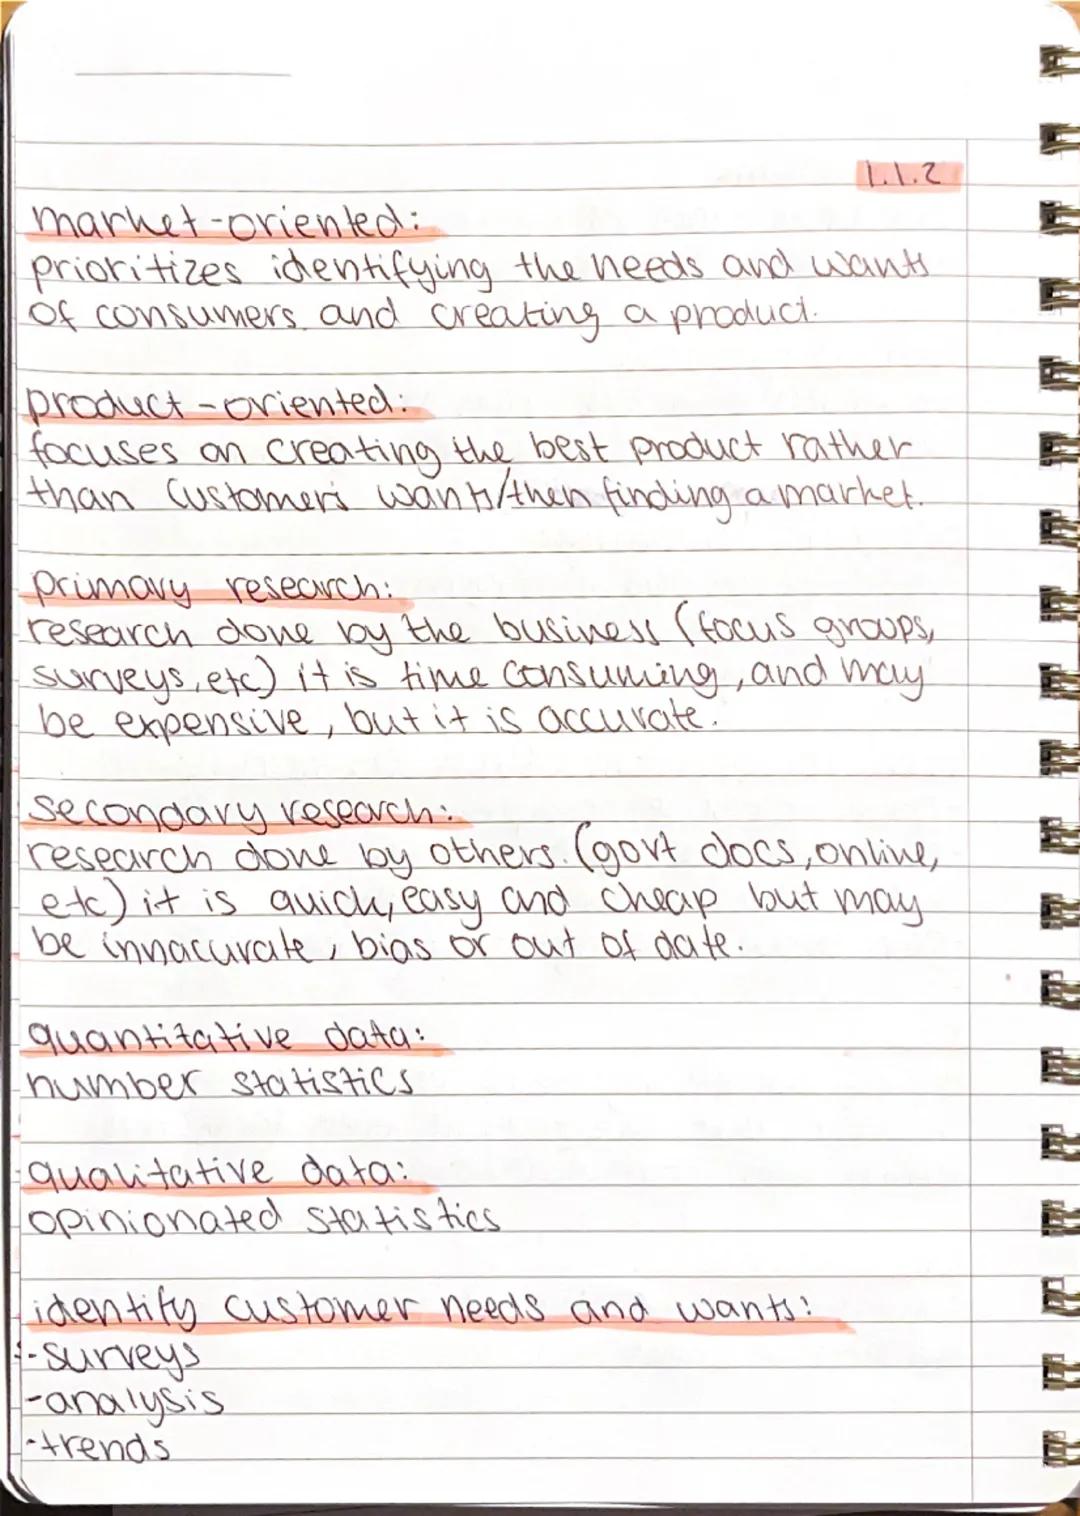 1.1.2
market-oriented:
prioritizes identifying the needs and wants
of consumers and creating a product.
product-oriented:
focuses on creating the best product rather
than customers wants/then finding a market.
primary research:
research done by the business (focus groups,
surveys, etc) it is time consuming, and may
be expensive, but it is accurate.
secondary research:
research done by others. (govt docs, online,
etc) it is quick, easy and cheap but may
be innacurate, bias or out of date.
quantitative data:
number statistics
qualitative data:
opinionated statistics
identify customer needs and wants:
-surveys
-analysis
-trends